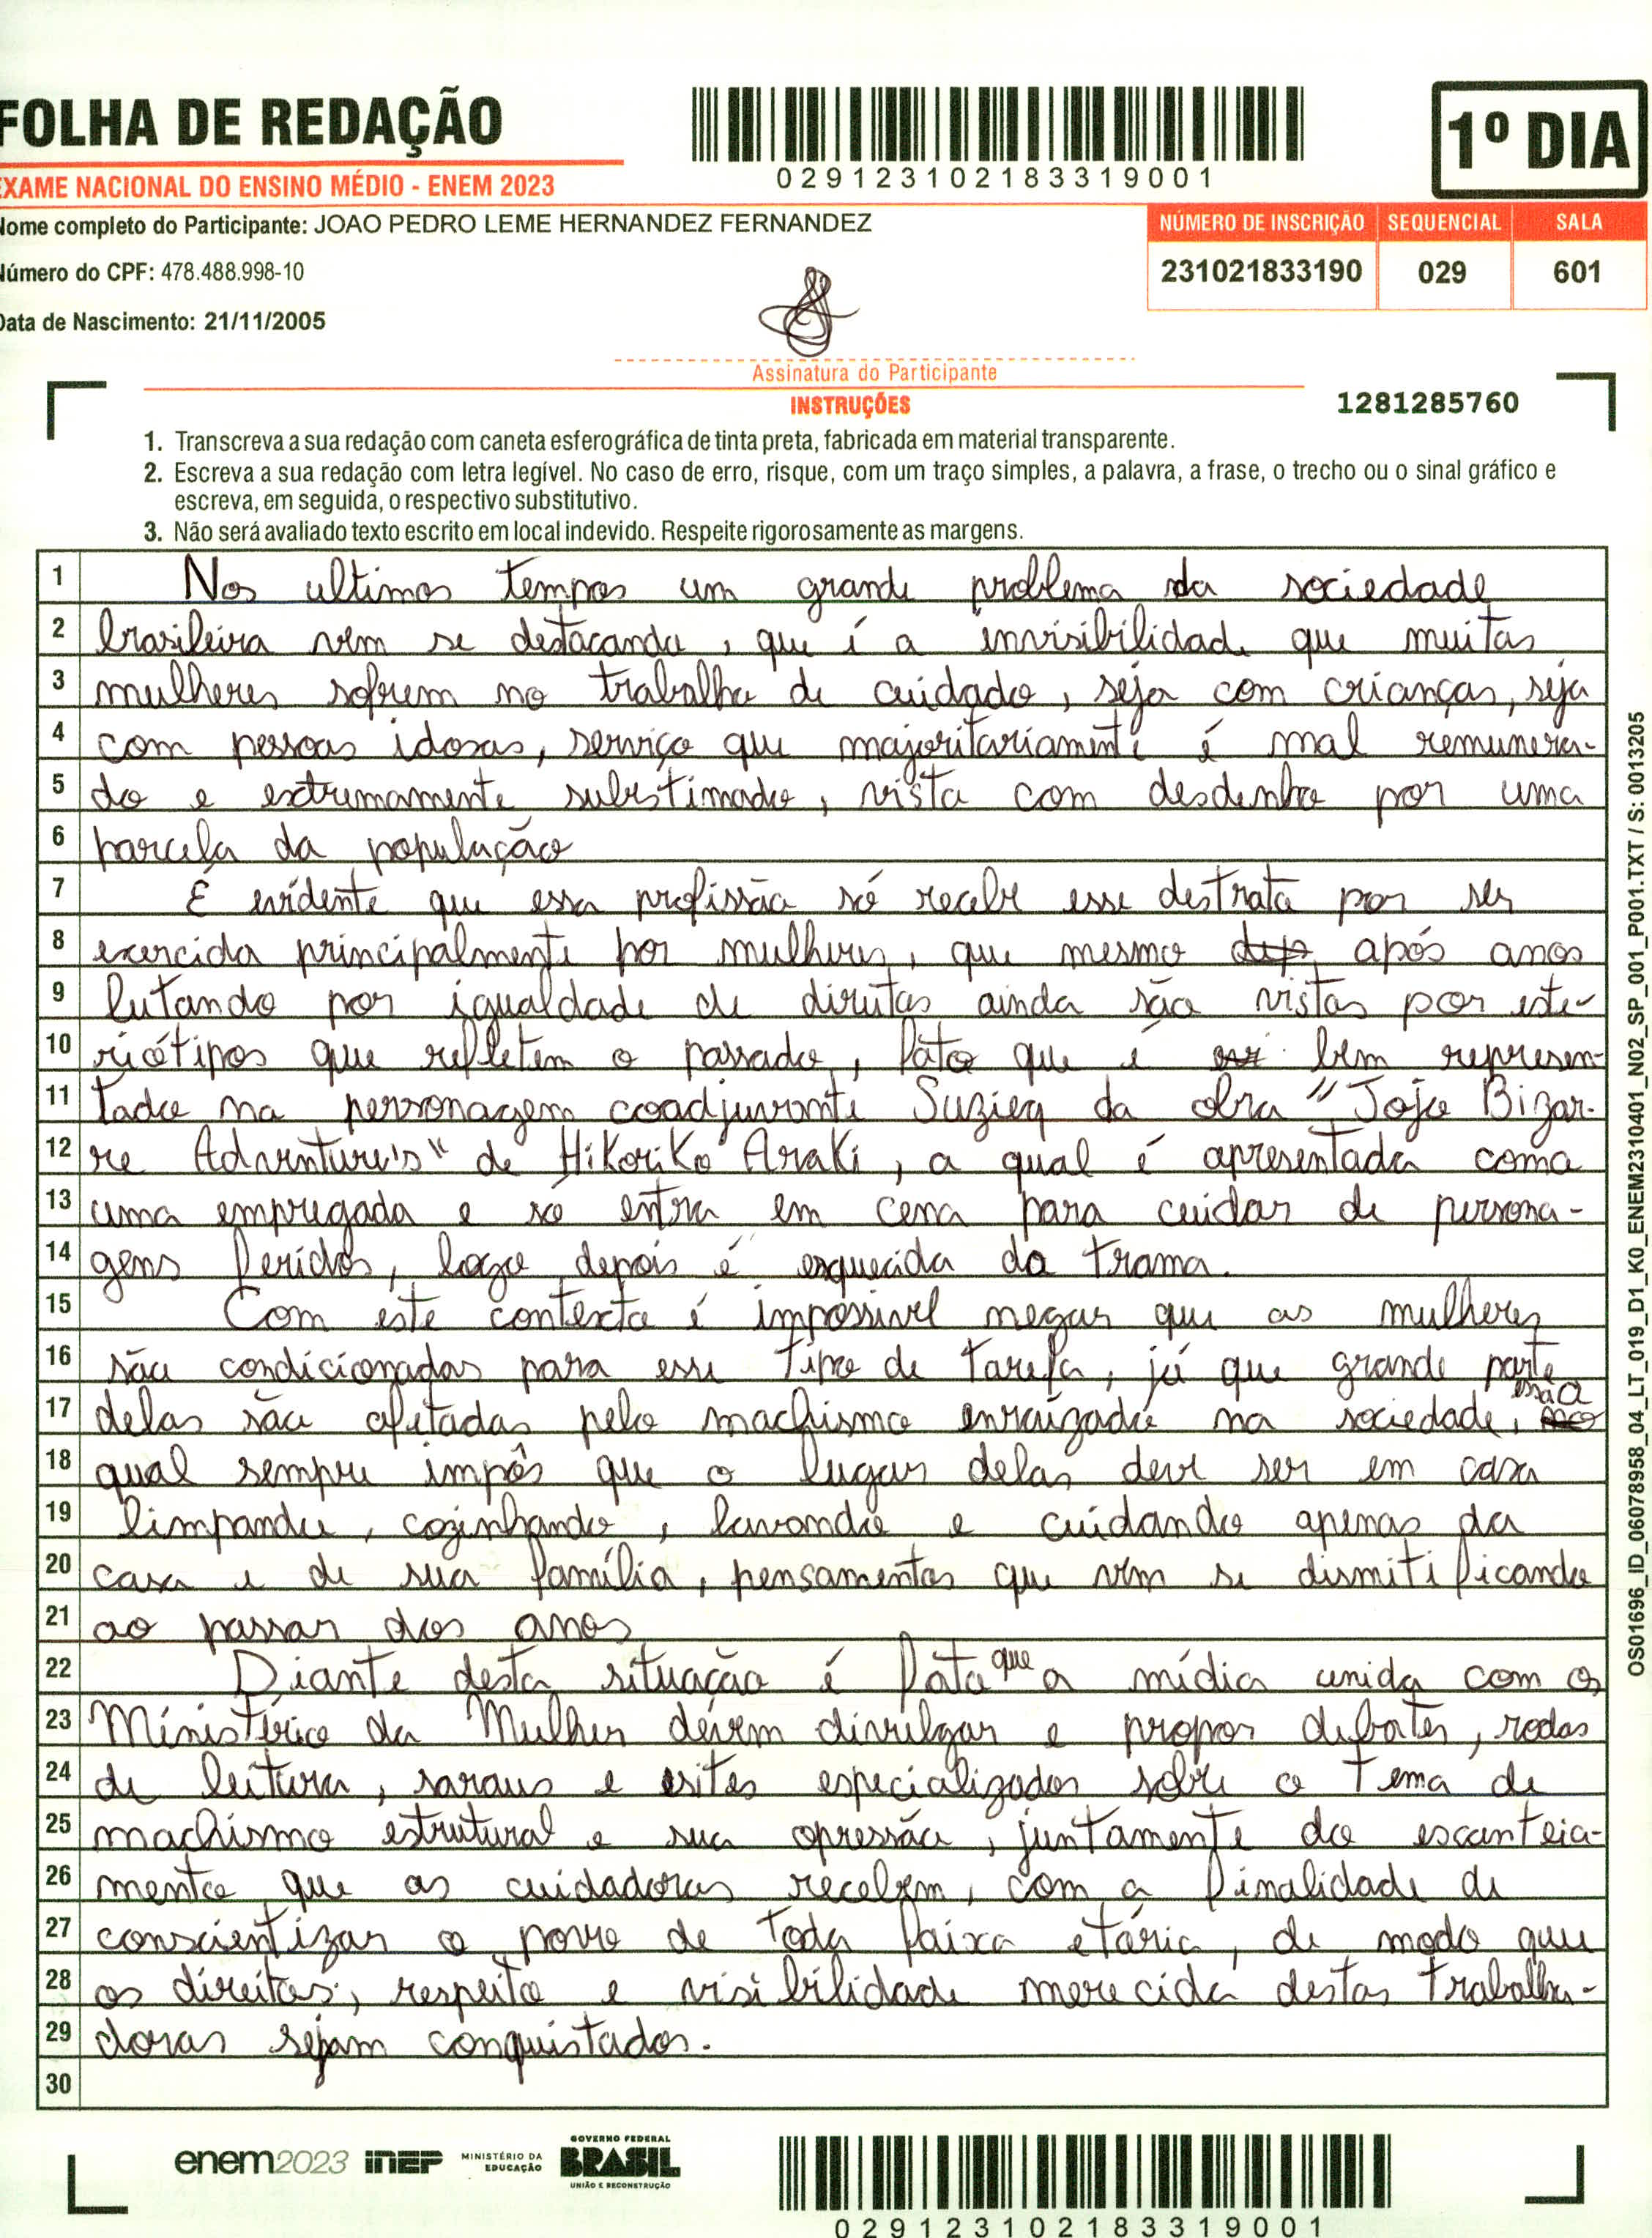 FOLHA DE REDAÇÃO
EXAME NACIONAL DO ENSINO MÉDIO - ENEM 2023
029123102183319001
1º DIA
Nome completo do Participante: JOAO PEDRO LEME HERNANDEZ FERNANDEZ
Número do CPF: 478.488.998-10
Data de Nascimento: 21/11/2005
NÚMERO DE INSCRIÇÃO SEQUENCIAL SALA
231021833190 029 601
Assinatura do Participante
INSTRUÇÕES
1281285760
1. Transcreva a sua redação com caneta esferográfica de tinta preta, fabricada em material transparente.
2. Escreva a sua redação com letra legível. No caso de erro, risque, com um traço simples, a palavra, a frase, o trecho ou o sinal gráfico e
escreva, em seguida, o respectivo substitutivo.
3. Não será avaliado texto escrito em local indevido. Respeite rigorosamente as margens.
1 Nos ultimos tempos um grande problema da sociedade
2 brasileira vem se destacando, que é a invisibilidade que muitas
3 mulheres sofrem no trabalho de cuidado, seja com crianças, seja
4 com pessoas idosas, serviço que majoritariamente é mal remunera-
5 do e extremamente subestimado, vista com desdenho por uma
6 parcela da população
7 É evidente que essa profissão só recebe esse destrato por ser
8 exercida principalmente por mulheres, que mesmo após anos
9 lutando por igualdade de direitos ainda são vistas por este-
10 riótipos que refletem o passado, fato que é bem represen-
11 tado na personagem coadjuvante Suzieq da obra "Jojo Bizar-
12 re Adventure's" de Hikoriko Araki, a qual é apresentada como
13 uma empregada e só entra em cena para cuidar de persona-
14 gens feridos, logo depois é esquecida da trama.
15 Com este contexto é impossível negar que as mulheres
16 são condicionadas para esse tipo de tarefa, já que grande parte
17 delas são afetadas pelo machismo enraizado na sociedade, essa a
18 qual sempre impôs que o lugar delas deve ser em casa
19 limpando, cozinhando, lavando e cuidando apenas da
20 casa e de sua família, pensamentos que vem se dismitificando
21 ao passar dos anos
22 Diante desta situação é fato que a mídia unida com o
23 Ministério da Mulher devem divulgar e propor debates, rodas
24 de leitura, saraus e sites especializados sobre o tema de
25 machismo estrutural e sua opressão, juntamente do escanteia-
26 mento que as cuidadoras recebem, com a finalidade de
27 conscientizar o povo de toda faixa etária, de modo que
28 os direitos, respeito e visibilidade merecida destas trabalha-
29 doras sejam conquistados.
30
OS01696_ID_06078958_04_LT_019_D1_K0_ENEM2310401_N02_SP_001_P001.TXT / S: 0013205
enem2023 INEP MINISTÉRIO DA EDUCAÇÃO GOVERNO FEDERAL BRASIL UNIÃO E RECONSTRUÇÃO
029123102183319001